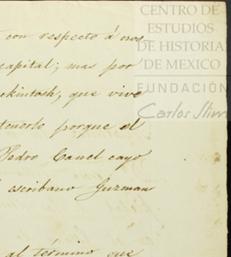 CENTRO DE
ESTUDIOS
DE HISTORIA
DE MEXICO
FUNDACIÓN
Carlos Slim
con respecto á
capital; mas por
ckintosh, que vive
porque el
Pedro Canel cayo
escribano Guzman
al término que